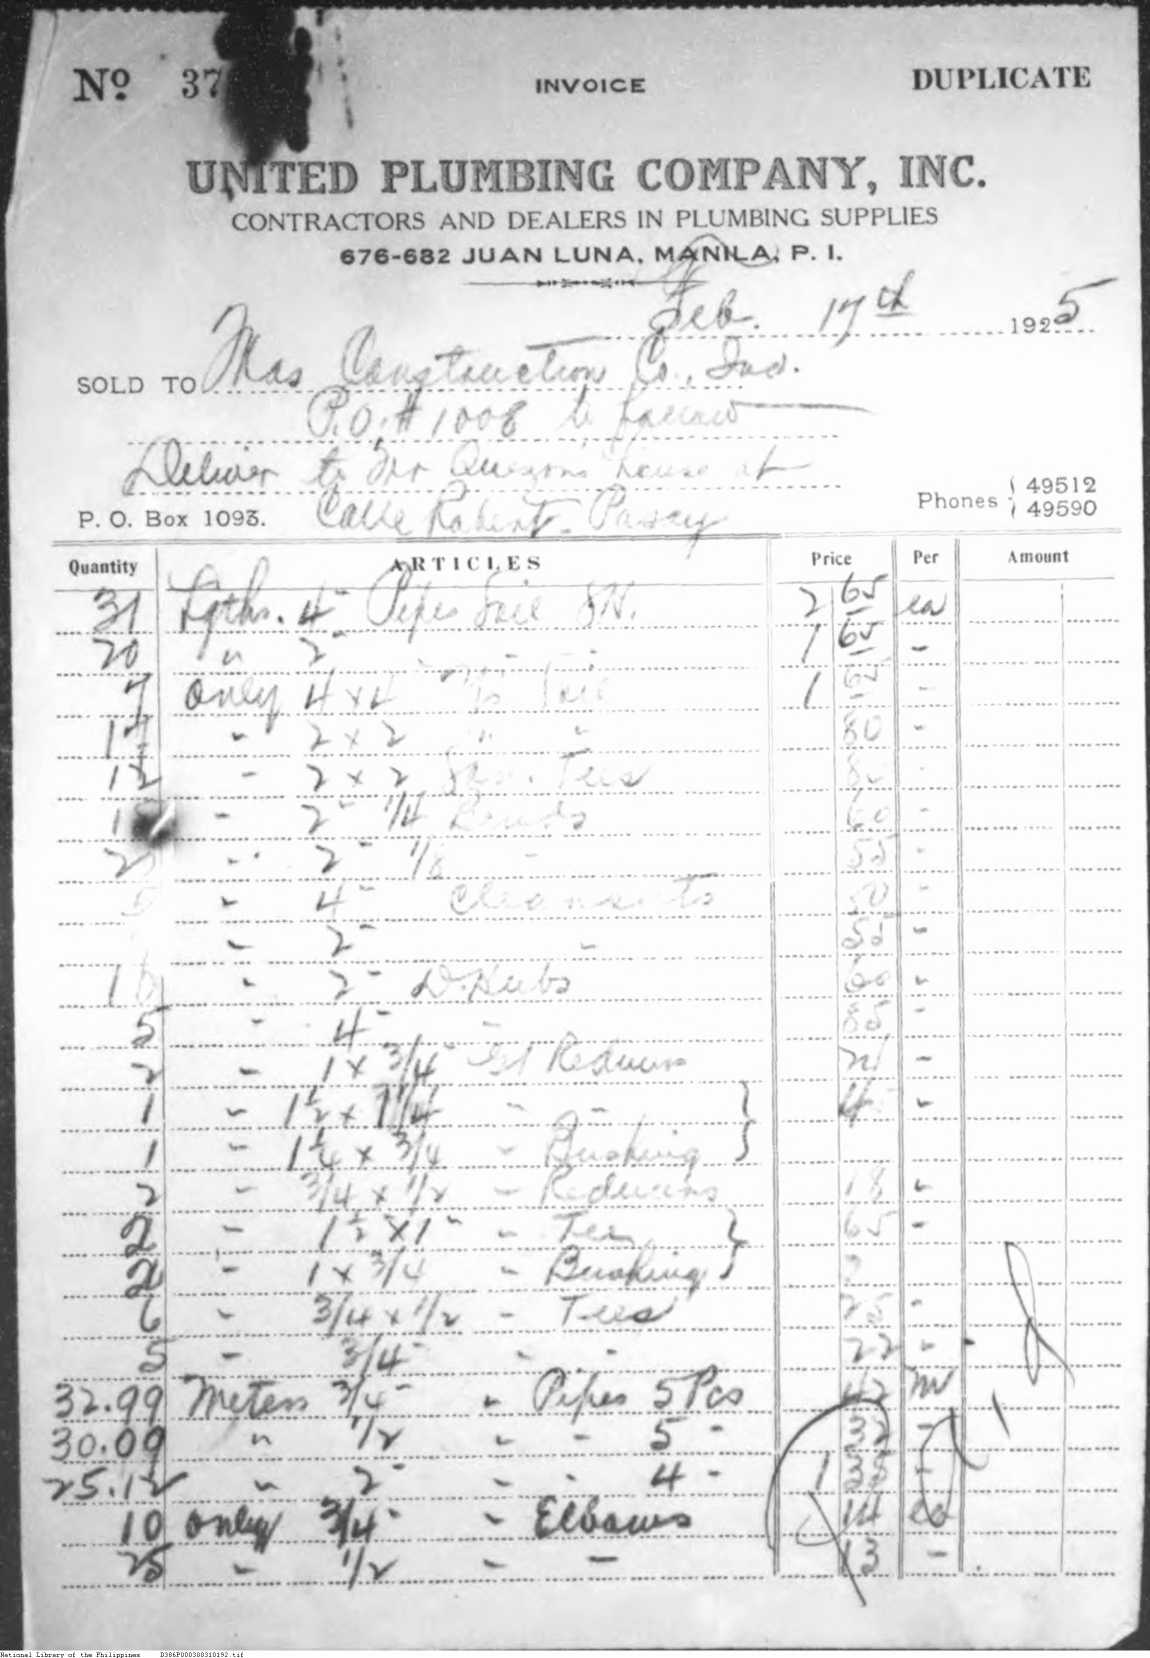 No. 37
INVOICE
DUPLICATE
UNITED PLUMBING COMPANY, INC.
CONTRACTORS AND DEALERS IN PLUMBING SUPPLIES
676-682 JUAN LUNA, MANILA, P. I.
Feb. 17th 1925
SOLD TO Mas Construction Co., Inc.
P.O. # 1008 to follow
Deliver to Mr Quezon's house at
P. O. Box 1093. Calle Robert - Pasay
Phones 49512
49590
Quantity ARTICLES Price Per Amount
31 Lgths. 4" Pipes Soil SH. 2 65 ea
20 " 2" " " " 1 65 "
7 only 4 x 4 Soil 1 65 "
17 " 2 x 2 " " 80 "
12 " 2 x 2 San. Tees 80 "
1 " 2" 1/4 Bends 60 "
2 " 2" 1/8 " 55 "
" 4" Cleanouts 50 "
" 2" " 55 "
16 " 2" D. Hubs 60 "
5 " 4" " 85 "
2 " 1 x 3/4" Reducers "
1 " 1 1/2 x 1 1/4 " " } 45 "
1 " 1 1/4 x 3/4 " Bushing }
2 " 3/4 x 1/2 " Reducers 18 "
2 " 1 1/2 x 1" " Tee } 65 "
2 " 1 x 3/4 " Bushing }
6 " 3/4 x 1/2 " Tees 25 "
5 " 3/4" " " 22 "
32.99 Meters 3/4" " Pipes 5 Pcs 42 m
30.09 " 1/2 " " 5 " 32 "
25.12 " 2" " " 4 " 1 "
10 only 3/4" " Elbows 14 ea
25 " 1/2 " " 13 "
National Library of the Philippines D386P000380310192.tif